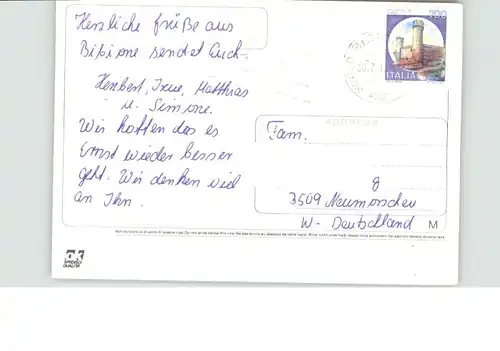 Herzliche Grüße aus
Bibione sendet Euch
Herbert, Irene, Matthias
u. Simone.
Wir hoffen das es
Ernst wieder besser
geht. Wir denken viel
an Ihn.
300
ITALIA
Fam.
g
3509 Neumorschen
W- Deutschland
M